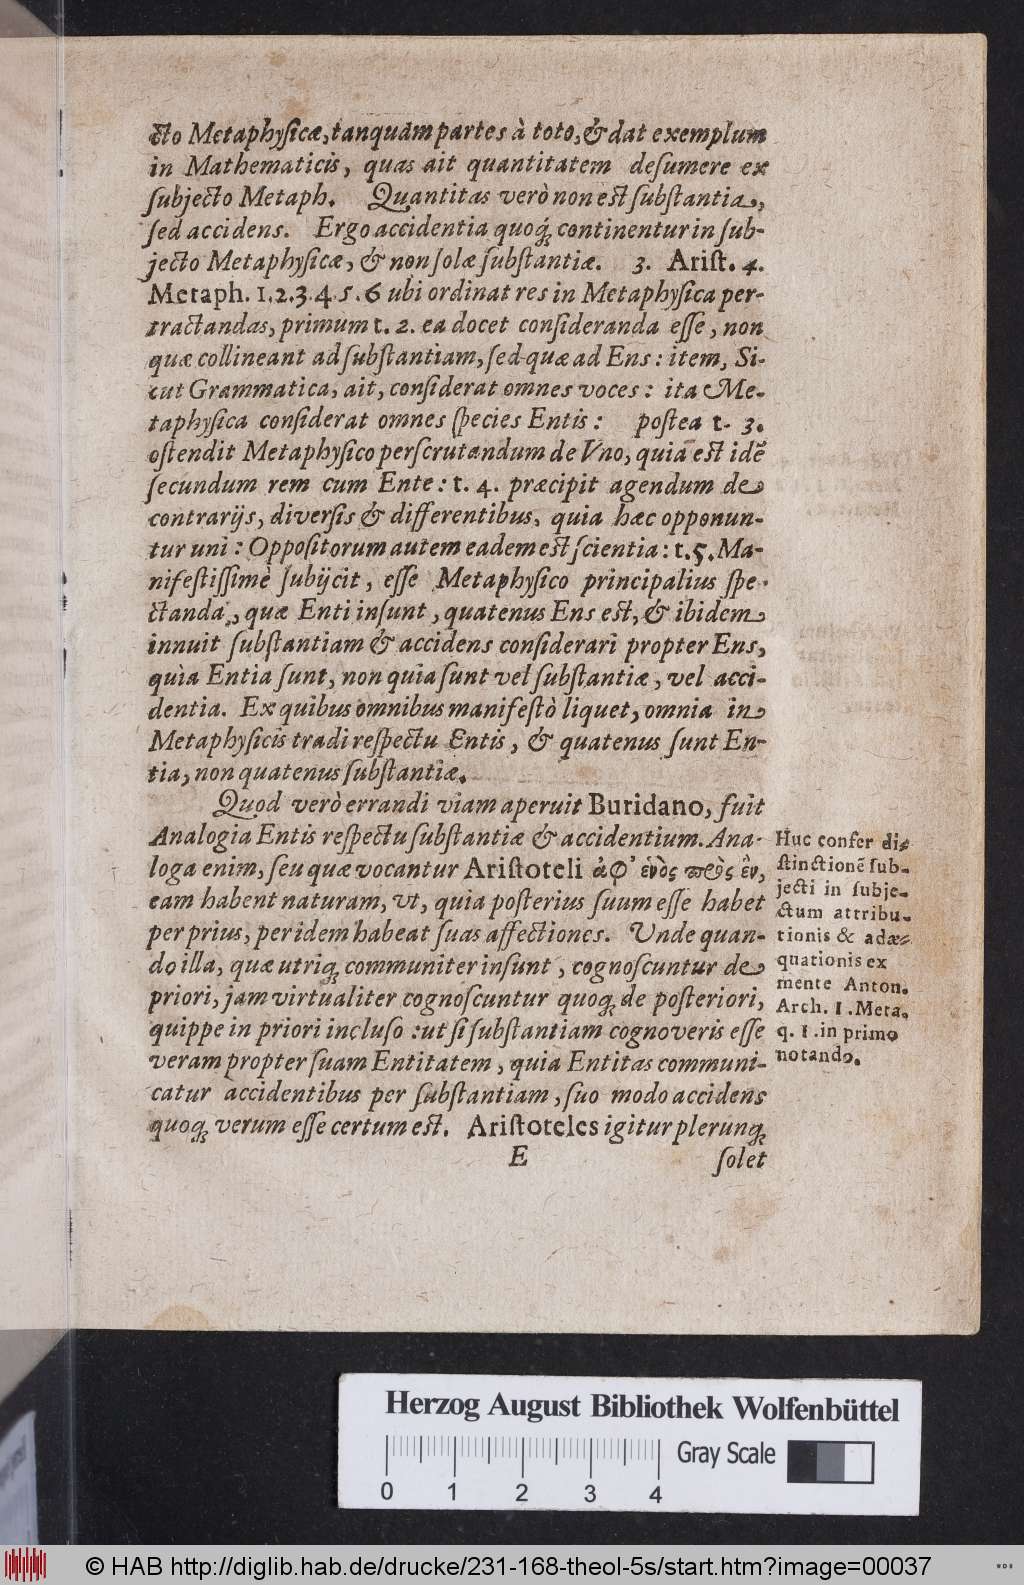 cto Metaphysicæ, tanquàm partes à toto, & dat exemplum
in Mathematicis, quas ait quantitatem desumere ex
subjecto Metaph. Quantitas verò non est substantia,
sed accidens. Ergo accidentia quoq́; continentur in sub-
jecto Metaphysicæ, & non solæ substantiæ. 3. Arist. 4.
Metaph. 1.2.3.4.5.6 ubi ordinat res in Metaphysica per-
tractandas, primum t. 2. ea docet consideranda esse, non
quæ collineant ad substantiam, sed quæ ad Ens: item, Si-
cut Grammatica, ait, considerat omnes voces: ita Me-
taphysica considerat omnes species Entis: postea t. 3.
ostendit Metaphysico perscrutandum de Vno, quia est idẽ
secundum rem cum Ente: t. 4. præcipit agendum de
contrarijs, diversis & differentibus, quia hæc opponun-
tur uni: Oppositorum autem eadem est scientia: t. 5. Ma-
nifestissimè subijcit, esse Metaphysico principalius spe-
ctanda, quæ Enti insunt, quatenus Ens est, & ibidem
innuit substantiam & accidens considerari propter Ens,
quia Entia sunt, non quia sunt vel substantiæ, vel acci-
dentia. Ex quibus omnibus manifestò liquet, omnia in
Metaphysicis tradi respectu Entis, & quatenus sunt En-
tia, non quatenus substantiæ.
Quod verò errandi viam aperuit Buridano, fuit
Analogia Entis respectu substantiæ & accidentium. Ana-
loga enim, seu quæ vocantur Aristoteli ἀφ' ἑνὸς πρὸς ἓν,
eam habent naturam, vt, quia posterius suum esse habet
per prius, per idem habeat suas affectiones. Unde quan-
do illa, quæ utriq; communiter insunt, cognoscuntur de
priori, jam virtualiter cognoscuntur quoq; de posteriori,
quippe in priori incluso: ut si substantiam cognoveris esse
veram propter suam Entitatem, quia Entitas communi-
catur accidentibus per substantiam, suo modo accidens
quoq; verum esse certum est. Aristoteles igitur plerunq;
E solet
Huc confer di-
stinctionẽ sub-
jecti in subje-
ctum attribu-
tionis & adæ-
quationis ex
mente Anton.
Arch. 1. Meta.
q. 1. in primo
notando.
Herzog August Bibliothek Wolfenbüttel
Gray Scale
0 1 2 3 4
© HAB http://diglib.hab.de/drucke/231-168-theol-5s/start.htm?image=00037